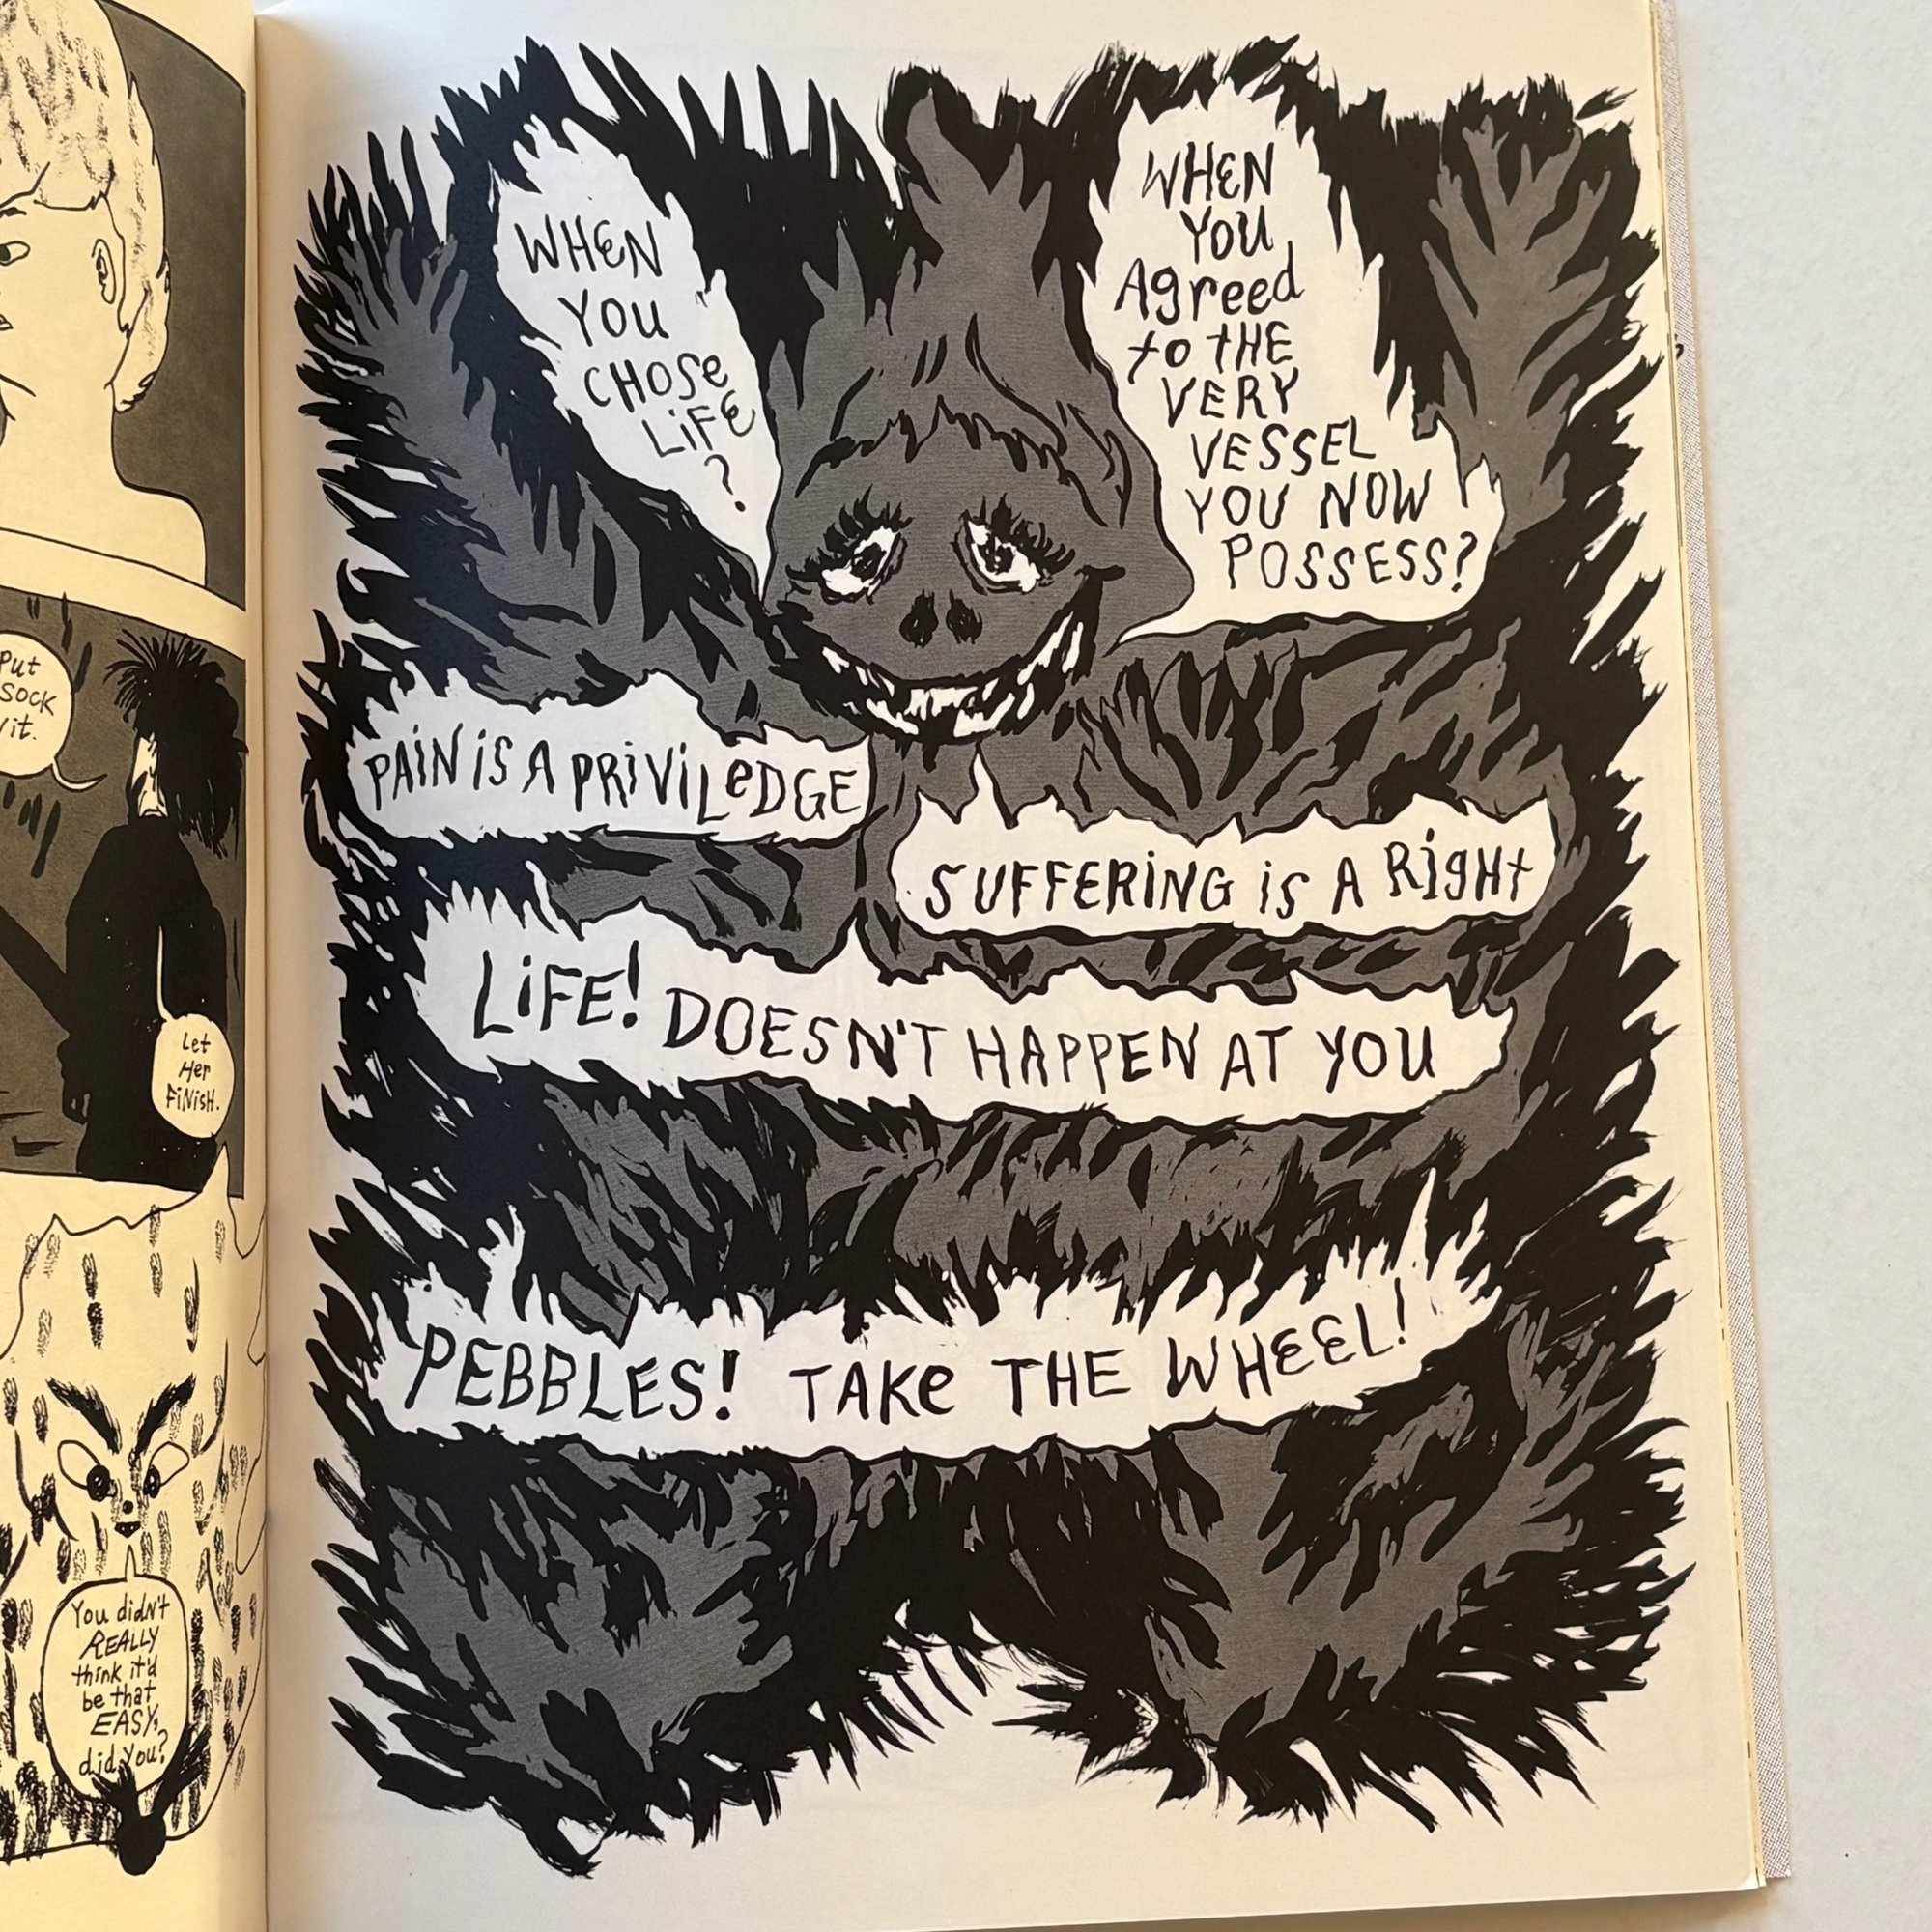 Put
SOCK
it.
Let
Her
FiNisH.
You didN't
REALLY
think it'd
be that
EASY,
did You?
WHEN
YOU
CHOSe
LiFE
?
WHEN
YOU
Agreed
to tHE
VERY
VESSEL
YOU NOW
POSSESS?
PAiN iS A PRiViLeDGE
SUFFERiNG iS A RigHt
LiFE! DOESN'T HAPPEN AT YOU
PEBBLES! TAKe THE WHEEL!